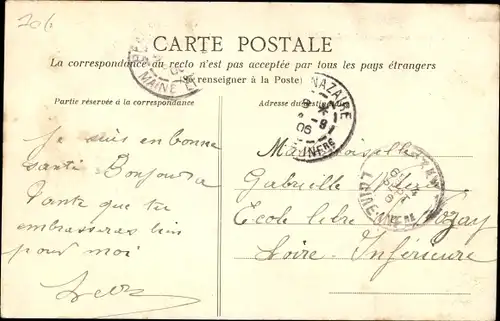 206
CARTE POSTALE
La correspondance au recto n'est pas acceptée par tous les pays étrangers
(Se renseigner à la Poste)
Partie réservée à la correspondance
Adresse du destinataire
NAZAIRE
8 *
8-1
06
INFRE
MAINE ET
LOIRE INFRE
je suis en bonne
santé Bonjour a
Tante que tu
embrasseras bien
pour moi
Mademoiselle
Gabrielle
Ecole libre Nozay
Loire-Inférieure